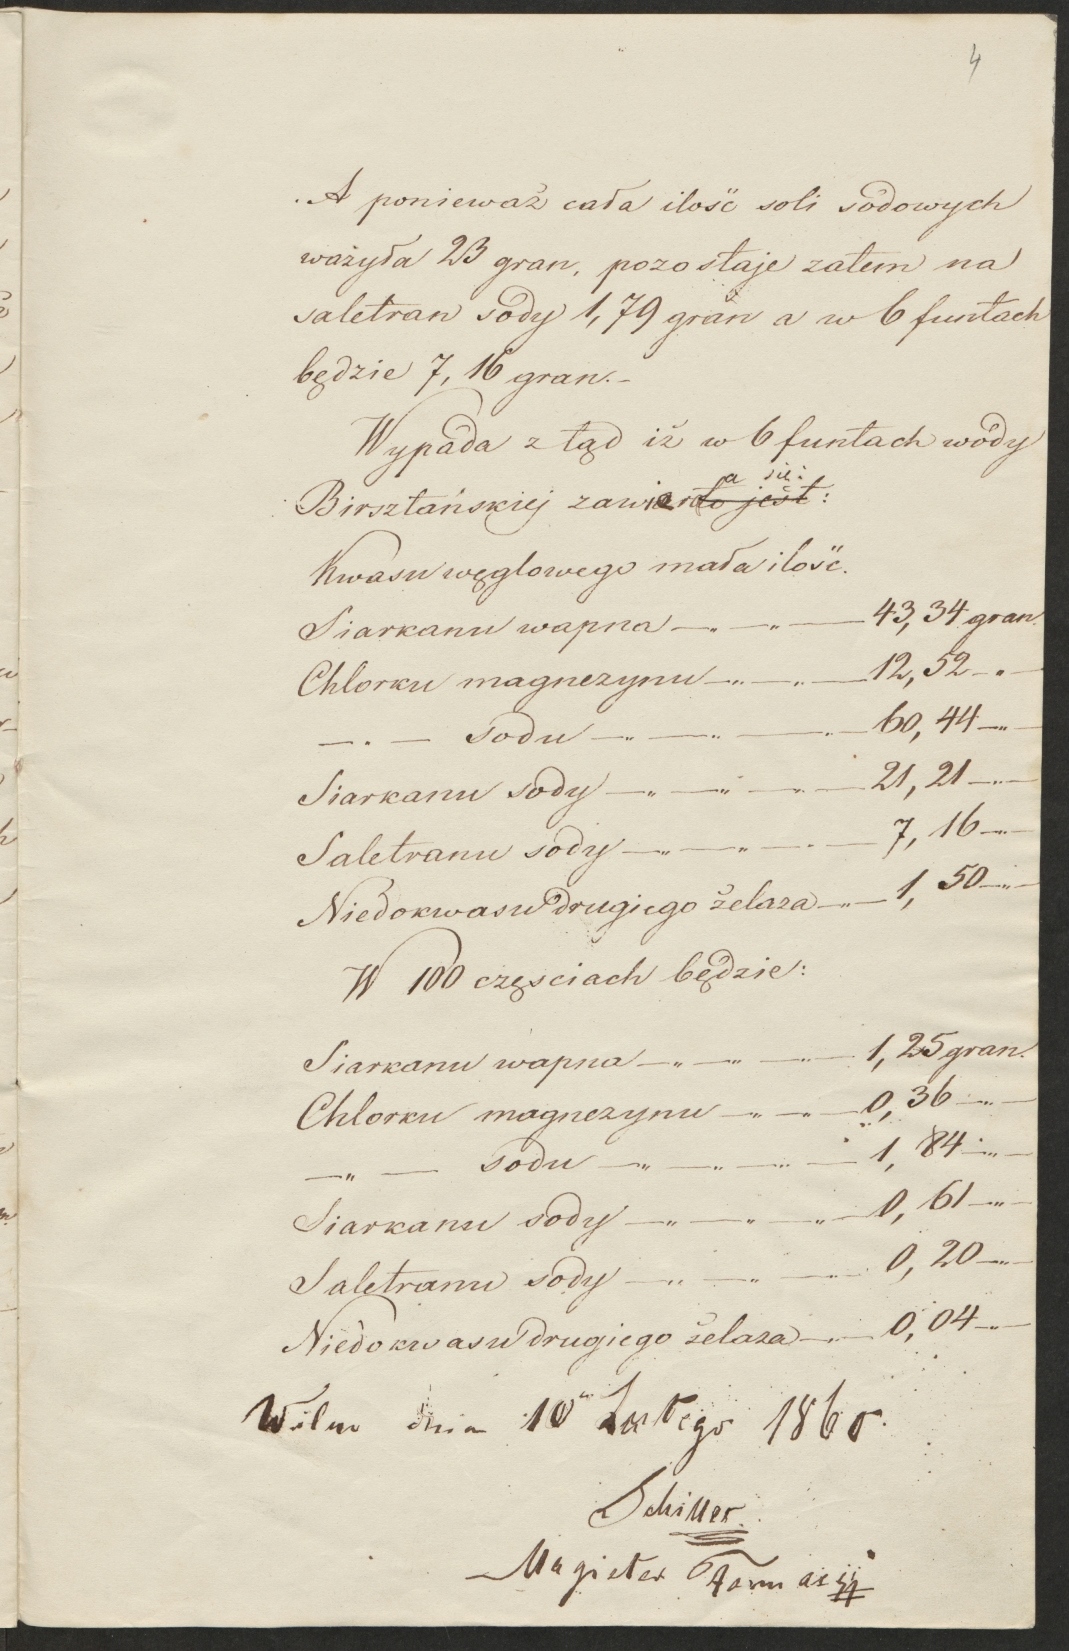 4
A ponieważ cała ilość soli sodowych
ważyła 23 gran, pozostaje zatem na
saletran sody 1,79 gran a w 6 funtach
będzie 7,16 gran.-
Wypada z tąd iż w 6 funtach wody
a się:
Birsztańskiej zawier to jest:
Kwasu węglowego mała ilość.
Siarkanu wapna — „ — „ — 43,34 gran.
Chlorku magnezynu — „ — „ — 12,52 — „ —
— „ — sodu — „ — „ — „ — 60,44 — „ —
Siarkanu sody — „ — „ — „ — 21,21 — „ —
Saletranu sody — „ — „ — „ — 7,16 — „ —
Niedokwasu drugiego żelaza — „ — 1,50 — „ —
W 100 częsciach będzie:
Siarkanu wapna — „ — „ — „ — 1,25 gran.
Chlorku magnezynu — „ — „ — 0,36 — „ —
— „ — sodu — „ — „ — „ — 1,84 — „ —
Siarkanu sody — „ — „ — „ — 0,61 — „ —
Saletranu sody — „ — „ — „ — 0,20 — „ —
Niedokwasu drugiego żelaza — „ — 0,04 — „ —
Wilno dnia 10 Lutego 1860.
Schiller
Magister Farmacij